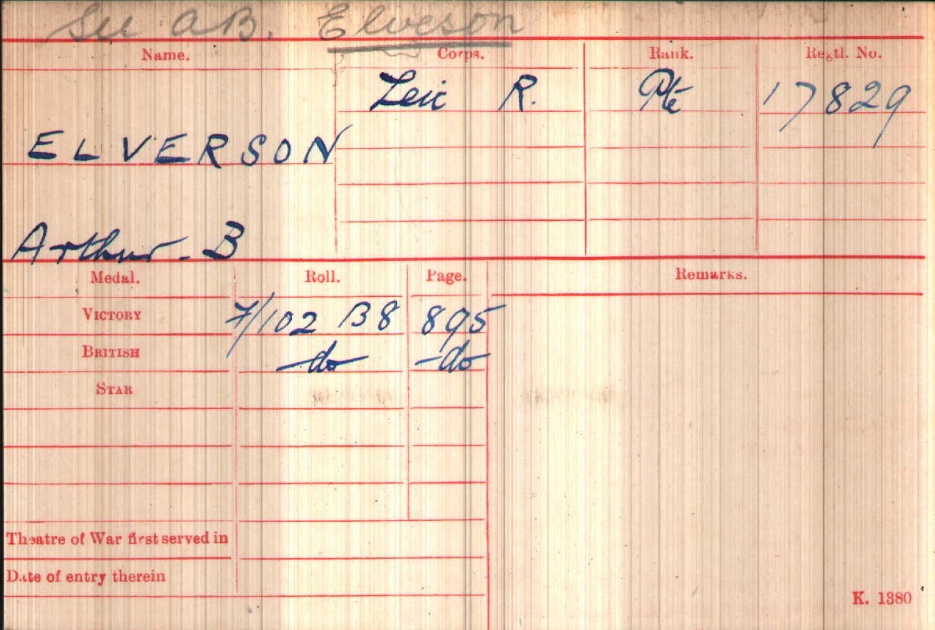 See A.B. Elveson
Name. Corps. Rank. Regtl. No.
Leic R. Pte 17829
ELVERSON
Arthur B
Medal. Roll. Page. Remarks.
VICTORY 7/102 B8 895
BRITISH -do- -do-
STAR
Theatre of War first served in
Date of entry therein
K. 1380